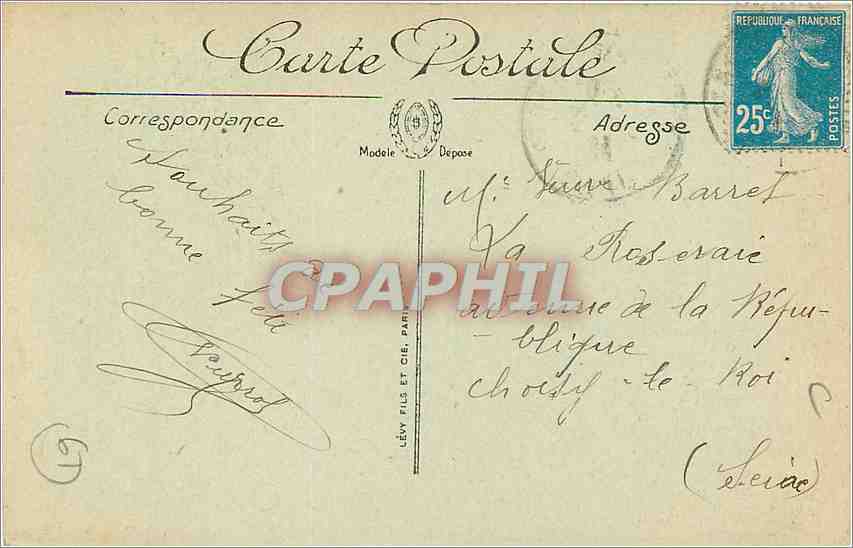 Carte Postale
RÉPUBLIQUE FRANÇAISE
25c
POSTES
Correspondance
Modèle Déposé
Adresse
Souhaits de
bonne fête
CPAPHIL
LÉVY FILS ET CIE, PARIS
Veuve Barret
La Roseraie
avenue de la Répu-
-blique
Choisy-le-Roi
(Seine)